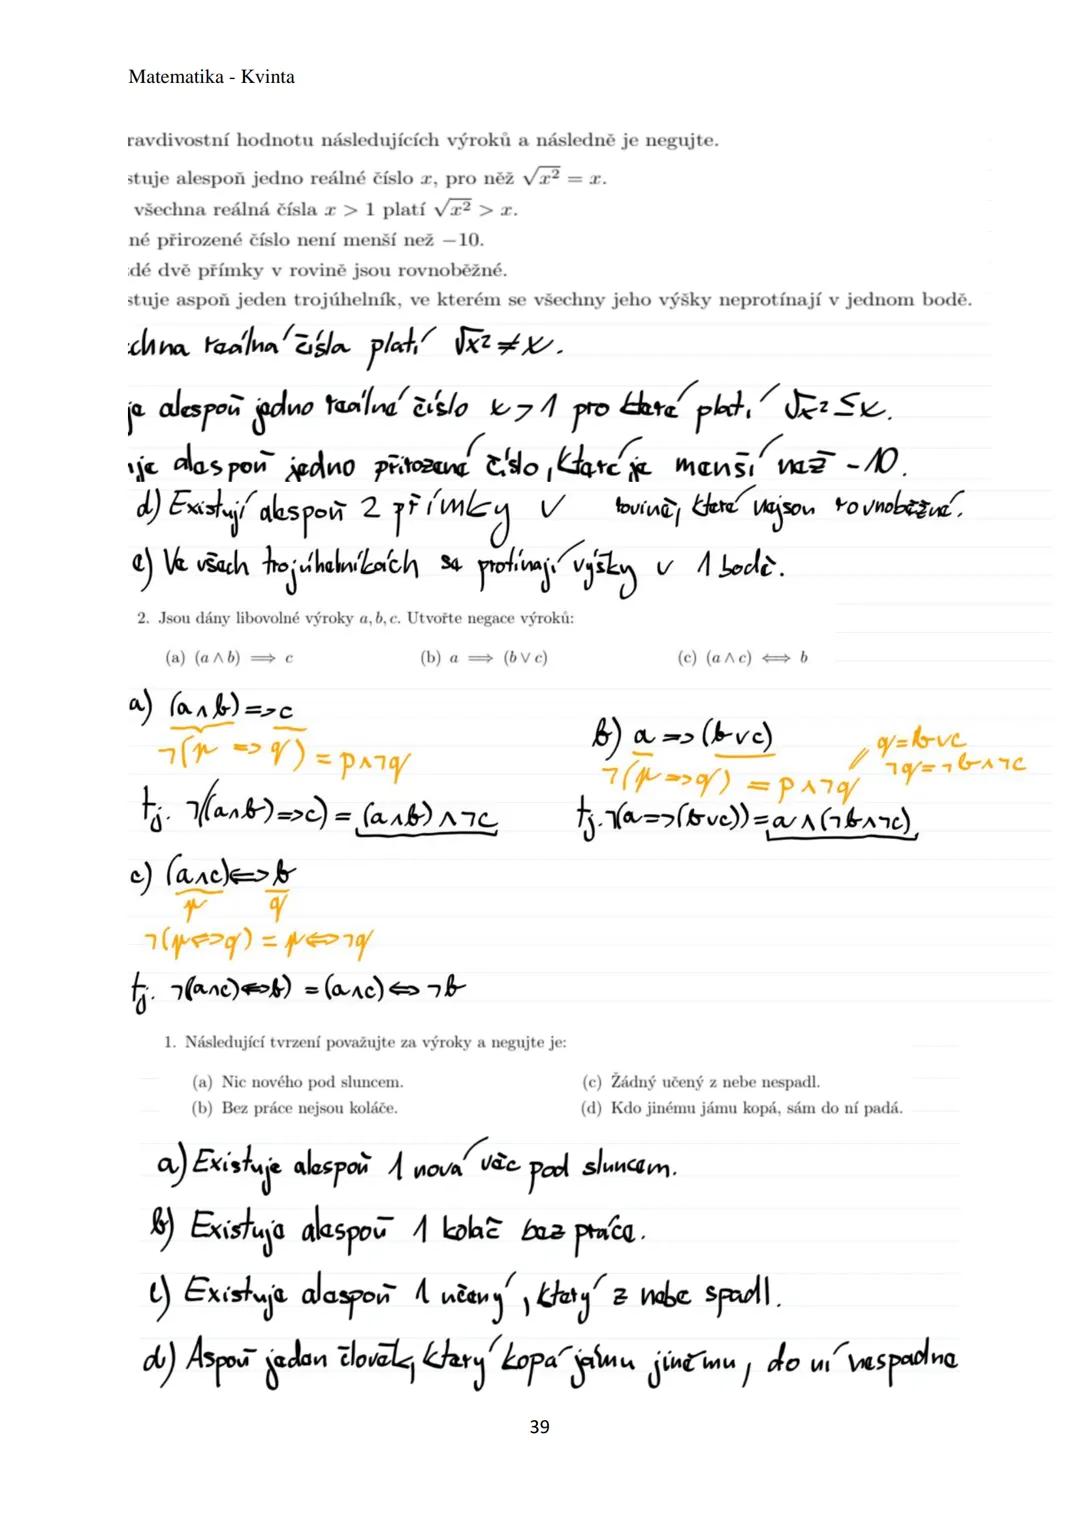 Matematika - Kvinta
ravdivostní hodnotu následujících výroků a následně je negujte.
stuje alespoň jedno reálné číslo x, pro něž √x² = x.
všechna reálná čísla x > 1 platí √x² > x.
né přirozené číslo není menší než −10.
dé dvě přímky v rovině jsou rovnoběžné.
stuje aspoň jeden trojúhelník, ve kterém se všechny jeho výšky neprotínají v jednom bodě.
chna reálná čísla platí √x² ≠ x.
je alespoň jedno reálné číslo x > 1 pro které platí √x² ≤ x.
uje alespoň jedno přirozené číslo, které je menší než -10.
d) Existují alespoň 2 přímky v rovině, které nejsou rovnoběžné.
e) Ve všech trojúhelníkách se protínají výšky v 1 bodě.
2. Jsou dány libovolné výroky a, b, c. Utvořte negace výroků:
(a) (a ∧ b) ⟹ c (b) a ⟹ (b ∨ c) (c) (a ∧ c) ⟺ b
a) (a∧b)=>c
¬(p => q) = p∧¬q
tj. ¬((a∧b)=>c) = (a∧b)∧¬c
b) a => (b∨c)
q=b∨c
¬q=¬b∧¬c
¬(p=>q) = p∧¬q
tj. ¬(a=>(b∨c))=a∧(¬b∧¬c)
c) (a∧c)<=>b
p q
¬(p<=>q) = p<=>¬q
tj. ¬(a∧c)<=>b) = (a∧c)<=>¬b
1. Následující tvrzení považujte za výroky a negujte je:
(a) Nic nového pod sluncem. (c) Žádný učený z nebe nespadl.
(b) Bez práce nejsou koláče. (d) Kdo jinému jámu kopá, sám do ní padá.
a) Existuje alespoň 1 nová věc pod sluncem.
b) Existuje alespoň 1 koláč bez práce.
c) Existuje alespoň 1 učený, který z nebe spadl.
d) Aspoň jeden člověk, který kopá jámu jinému, do ní nespadne
39